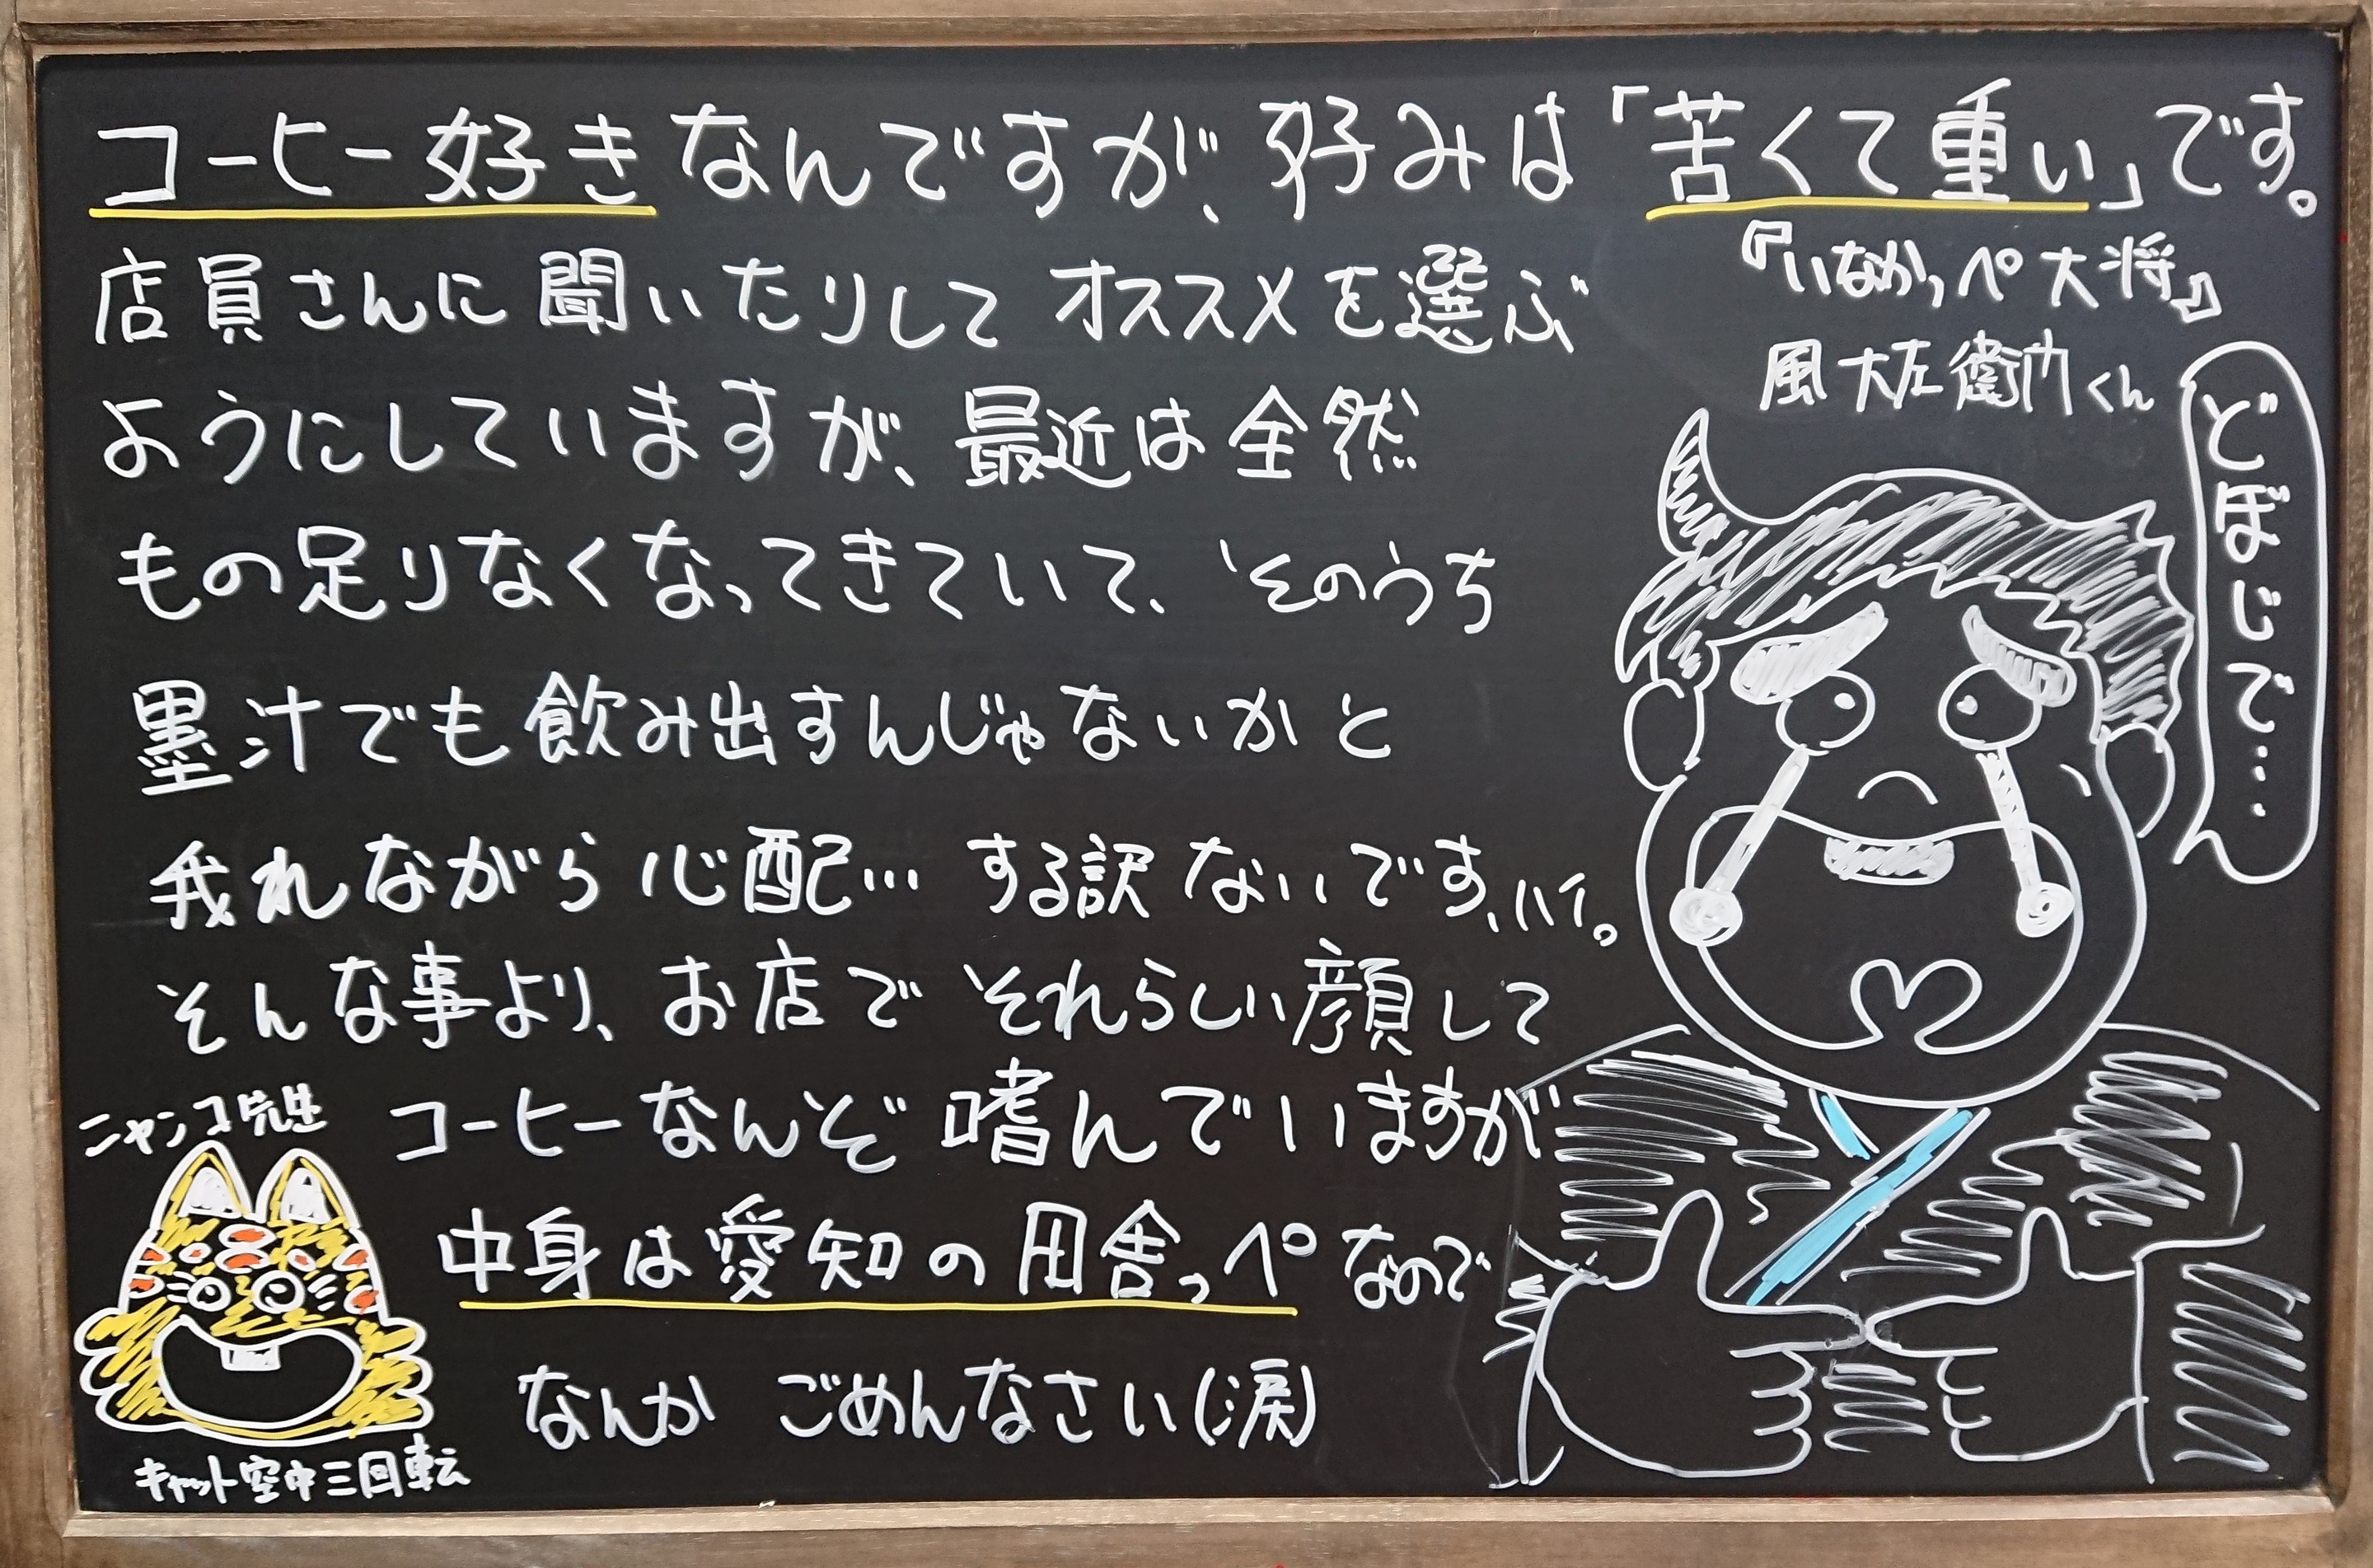 コーヒー好きなんですが、好みは「苦くて重い」です。
店員さんに聞いたりしてオススメを選ぶ
ようにしていますが、最近は全然
もの足りなくなってきていて、そのうち
墨汁でも飲み出すんじゃないかと
我れながら心配…する訳ないです、ハイ。
そんな事より、お店でそれらしい顔して
コーヒーなんぞ嗜んでいますが
中身は愛知の田舎っペなので
なんかごめんなさい(涙)
『いなかっぺ大将』
風大左衛門くん
どぼじで…
ニャンコ先生
キャット空中三回転